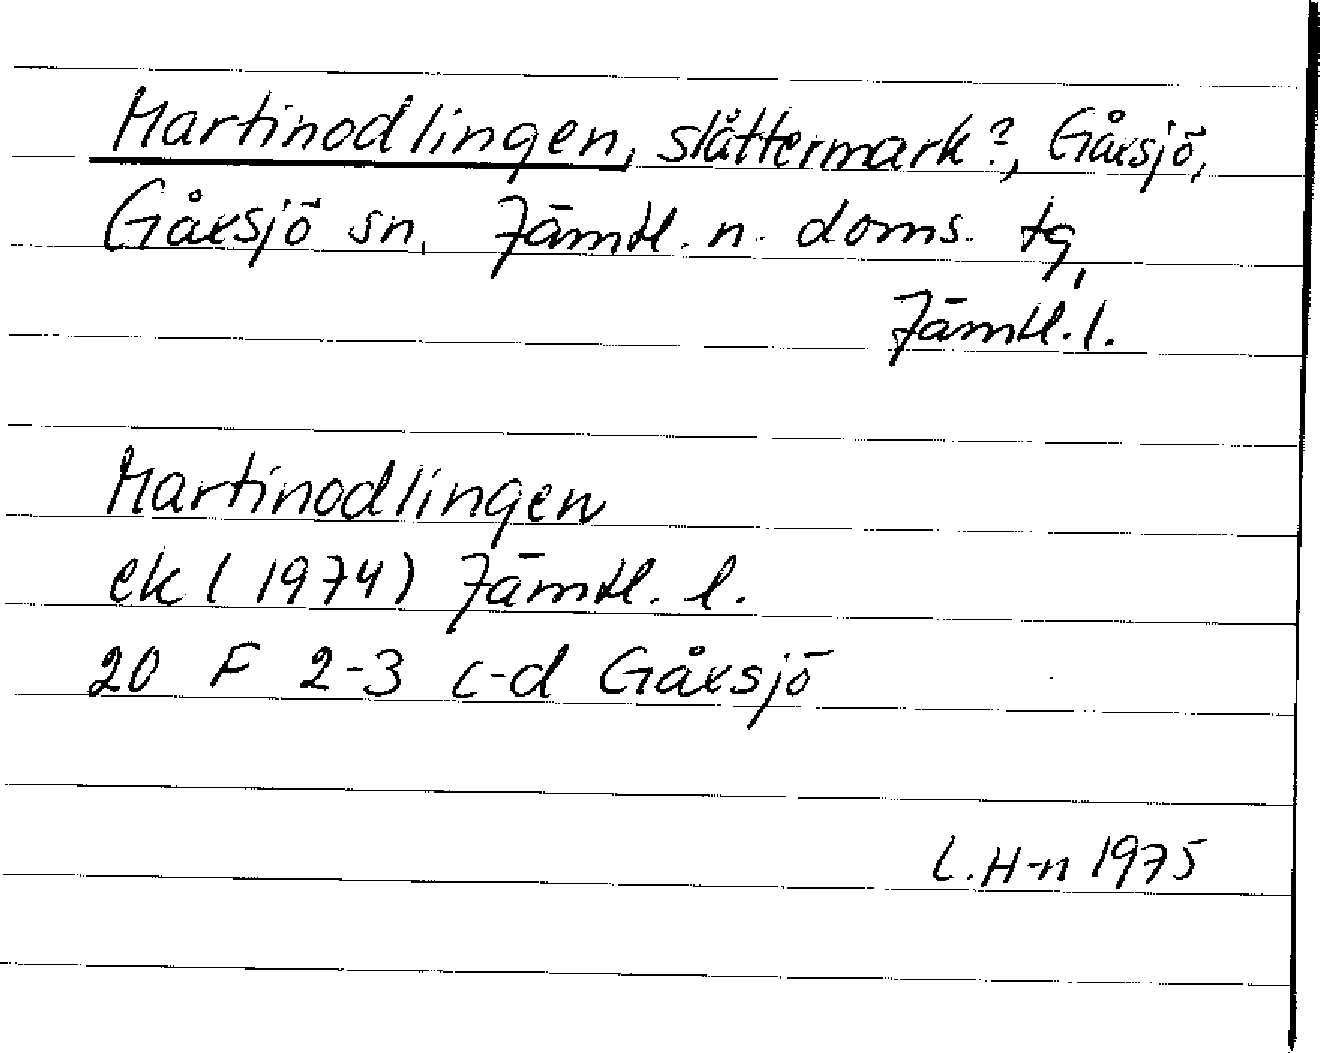 Martinodlingen, slåttermark?, Gåxsjö,
Gåxsjö sn, Jämtl. n. doms. tg,
Jämtl. l.
Martinodlingen
ek (1974) Jämtl. l.
20 F 2-3 c-d Gåxsjö
L. H-n 1975